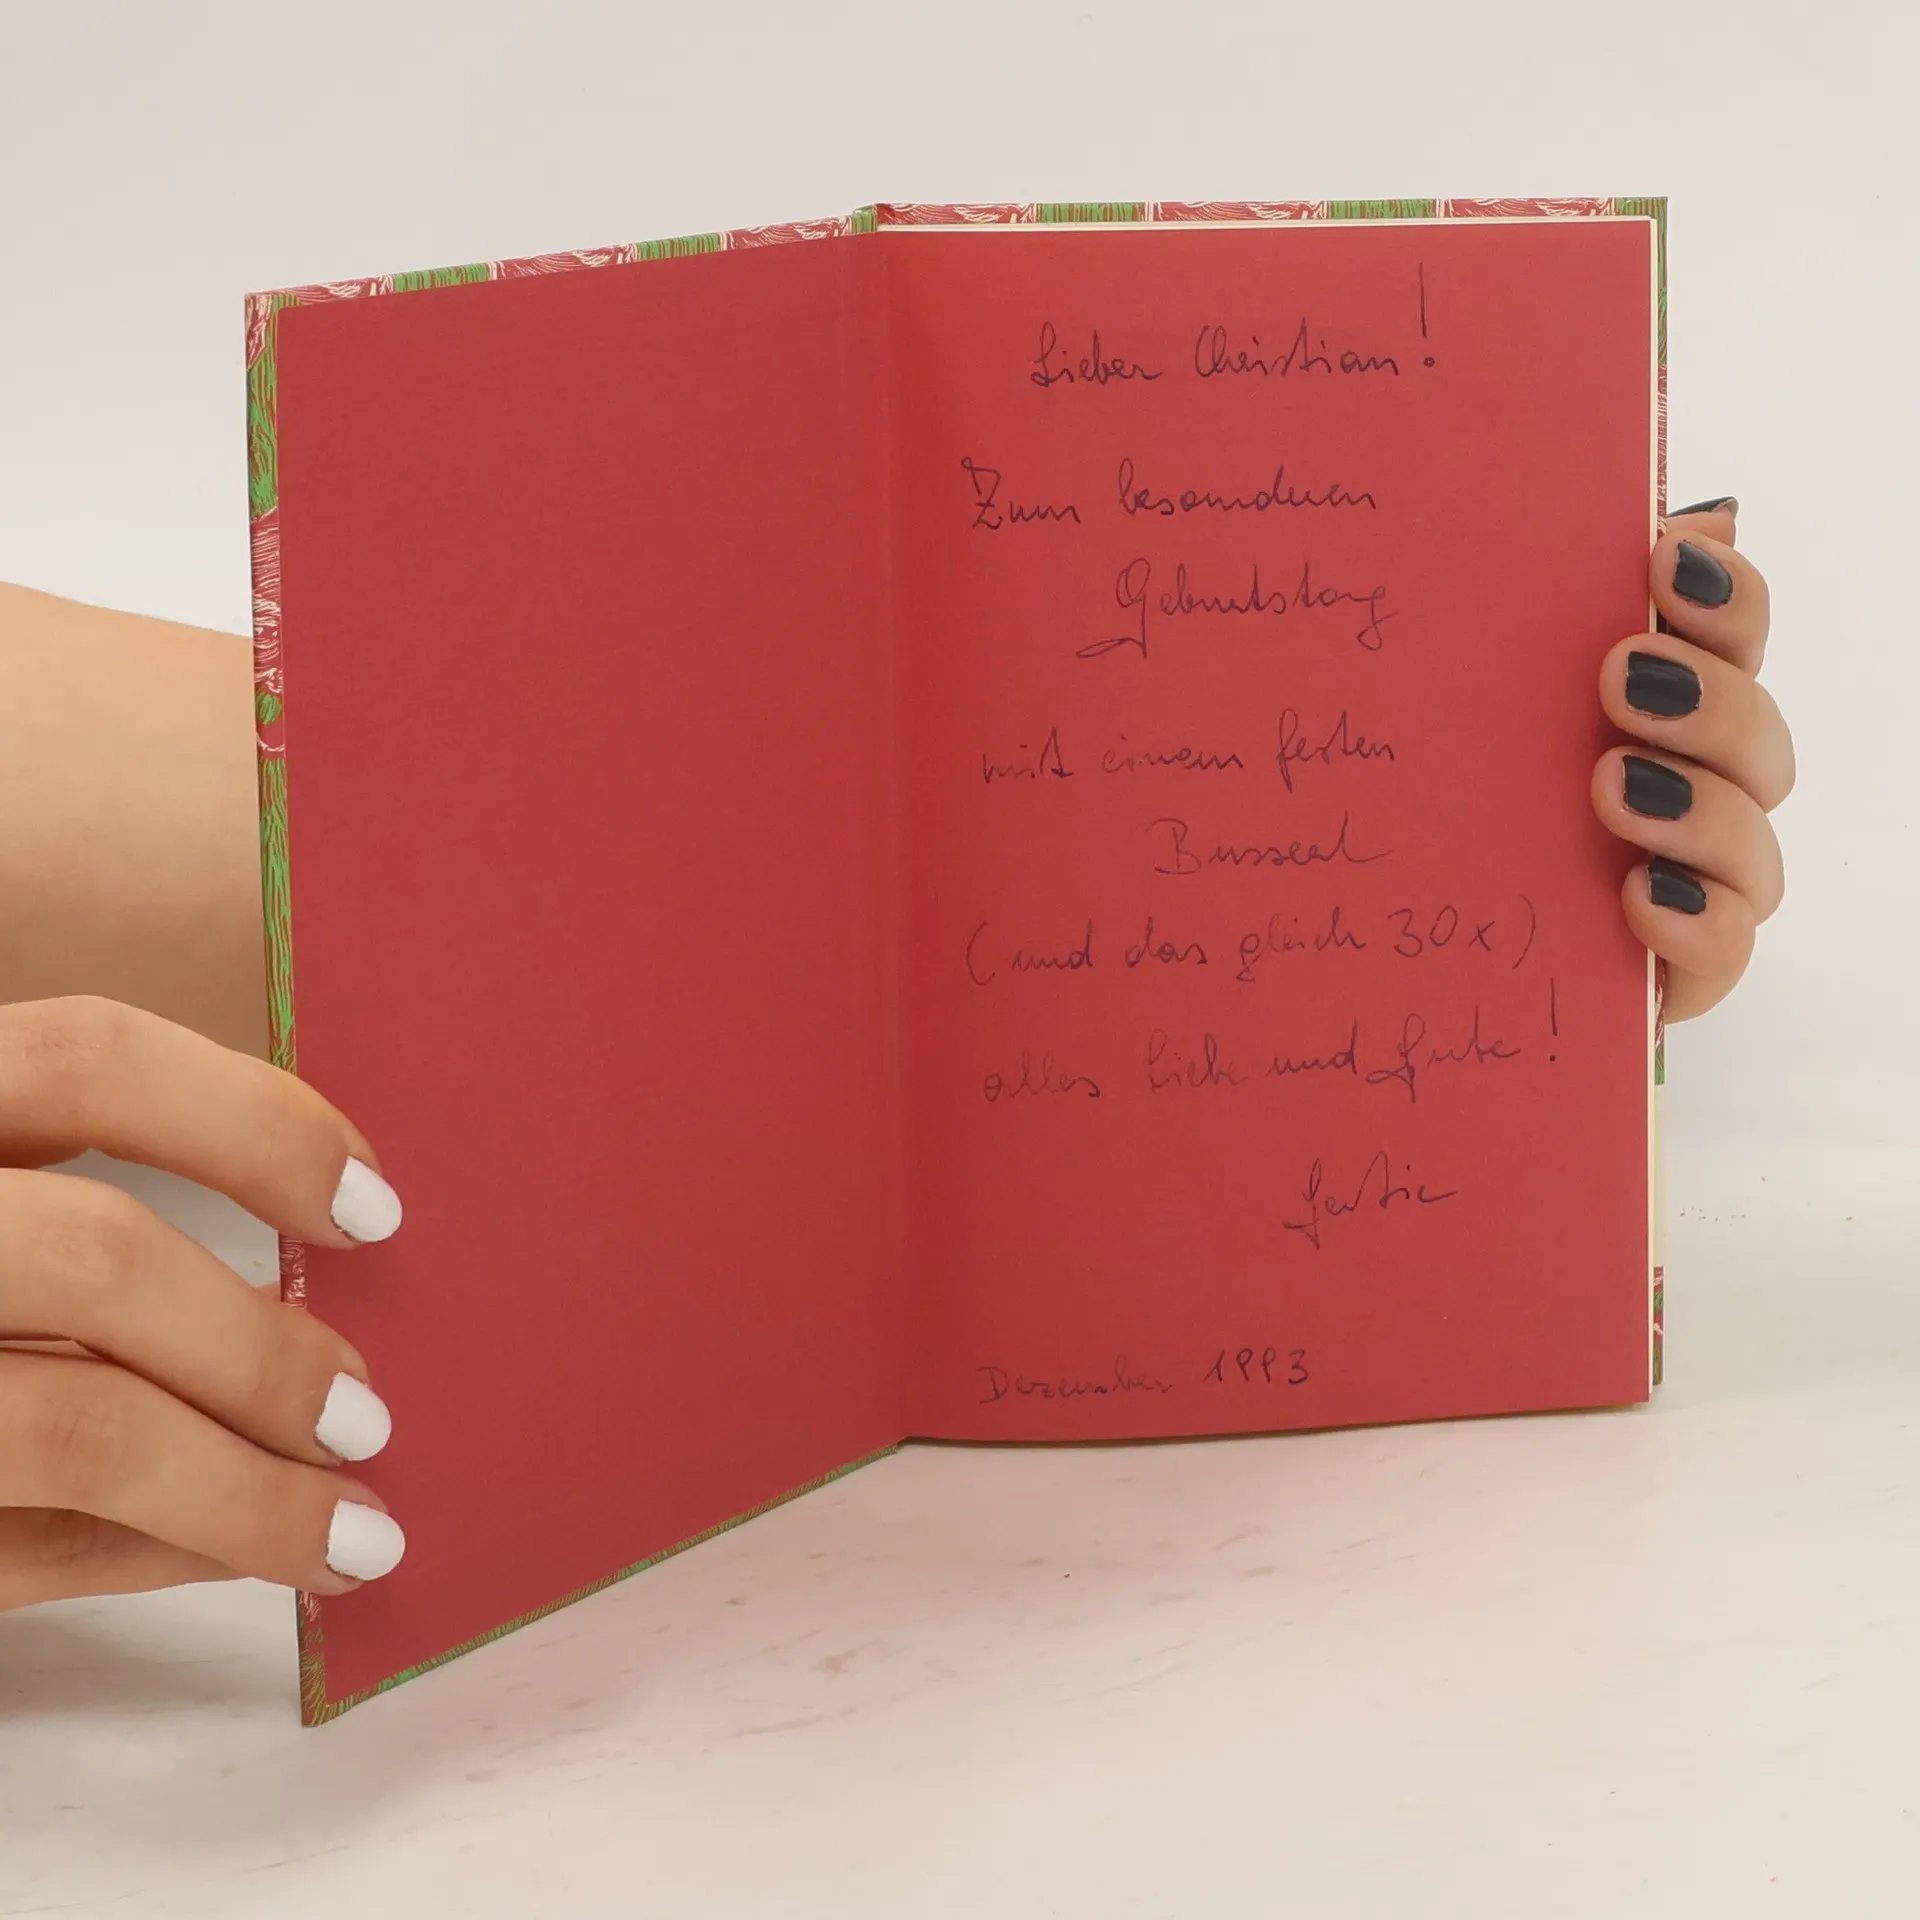 Lieber Christian!
Zum besonderen
Geburtstag
mit einem festen
Busserl
(und das gleich 30x)
alles Liebe und Gute!
Dezember 1993